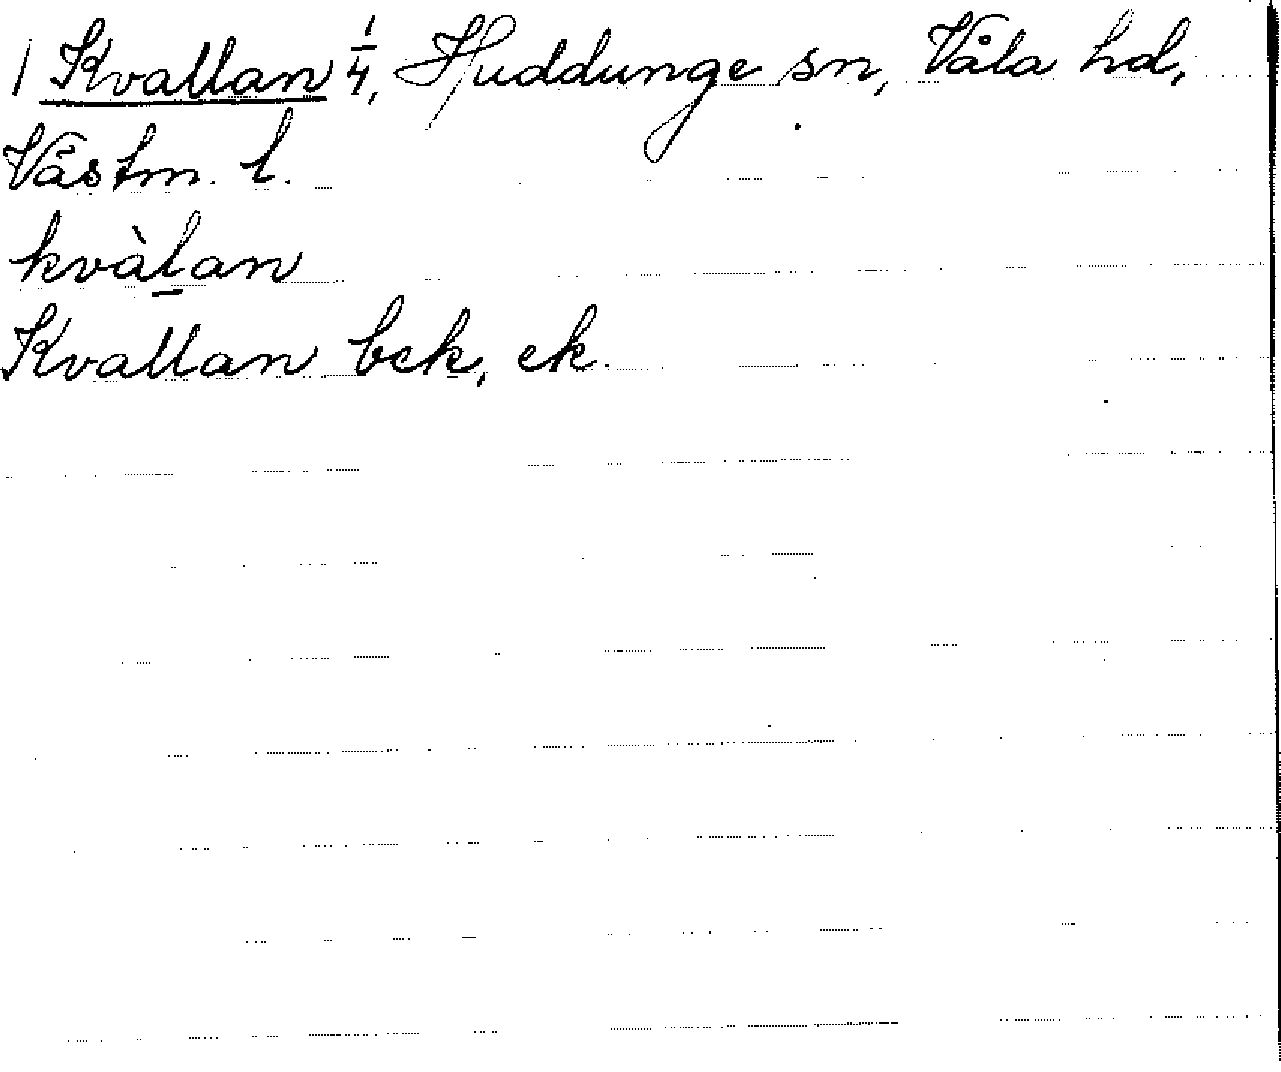 | Kvallan 1/4, Huddunge sn, Våla hd,
Västm. l.
kvàl̠an
Kvallan bek, ek.